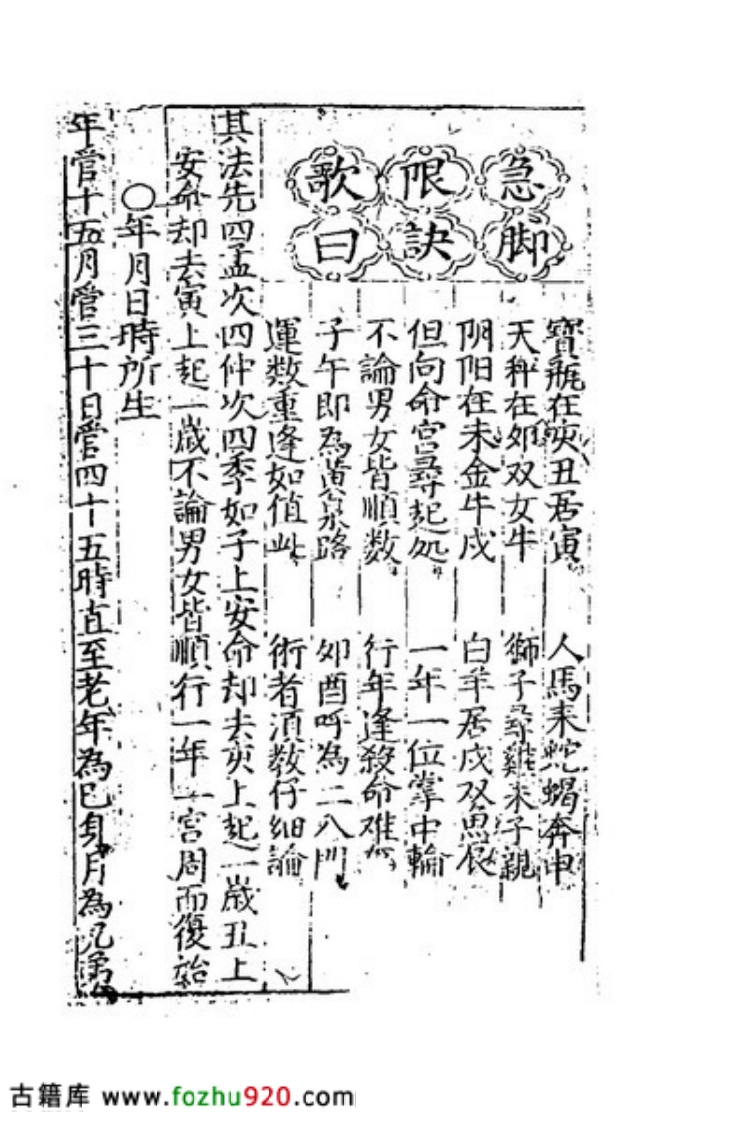 急脚
限訣
歌曰
寶瓶在亥丑居寅 人馬来蛇蝎奔申
天秤在卯双女牛 獅子尋雞来子親
阴阳在未金牛戌 白羊居戌双魚辰
但向命宮尋起処 一年一位掌中輪
不論男女皆順数 行年逢殺命难
子午即為黄泉路 卯酉呼為二八門
運数重逢如值此 術者須教仔細論
其法先四孟次四仲次四季如子上安命却去亥上起一歲丑上
安命却去寅上起一歲不論男女皆順行一年一宮周而復始
〇年月日時所生
年管十五月管三十日管四十五時直至老年為己身月為兄弟
古籍库 www.fozhu920.com